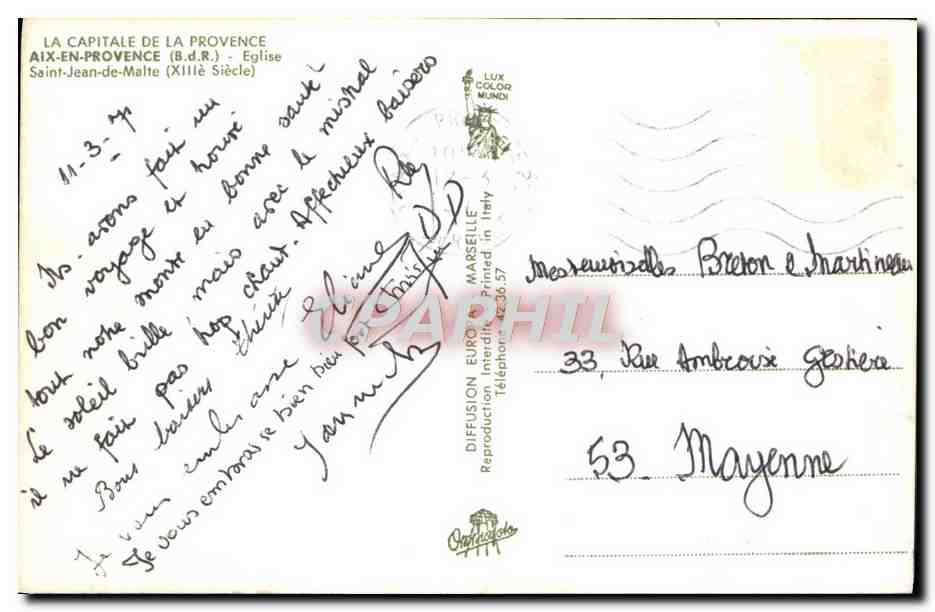 LA CAPITALE DE LA PROVENCE
AIX-EN-PROVENCE (B.d.R.) - Eglise
Saint-Jean-de-Malte (XIIIè Siècle)
11-3-71
Ns. avons fait un
bon voyage et trouvé
tout notre monde en bonne santé
Le soleil brille mais avec le mistral
il ne fait pas trop chaud. Affectueux baisers
Bons baisers
Je vous embrasse Eliane
Je vous embrasse bien
LUX
COLOR
MUNDI
DIFFUSION EUROPA MARSEILLE
Reproduction Interdite - Printed in Italy
Téléphone 42.36.57
CPAPHIL
Mesdemoiselles Breton & Martineau
33, Rue Ambroise
53 - Mayenne